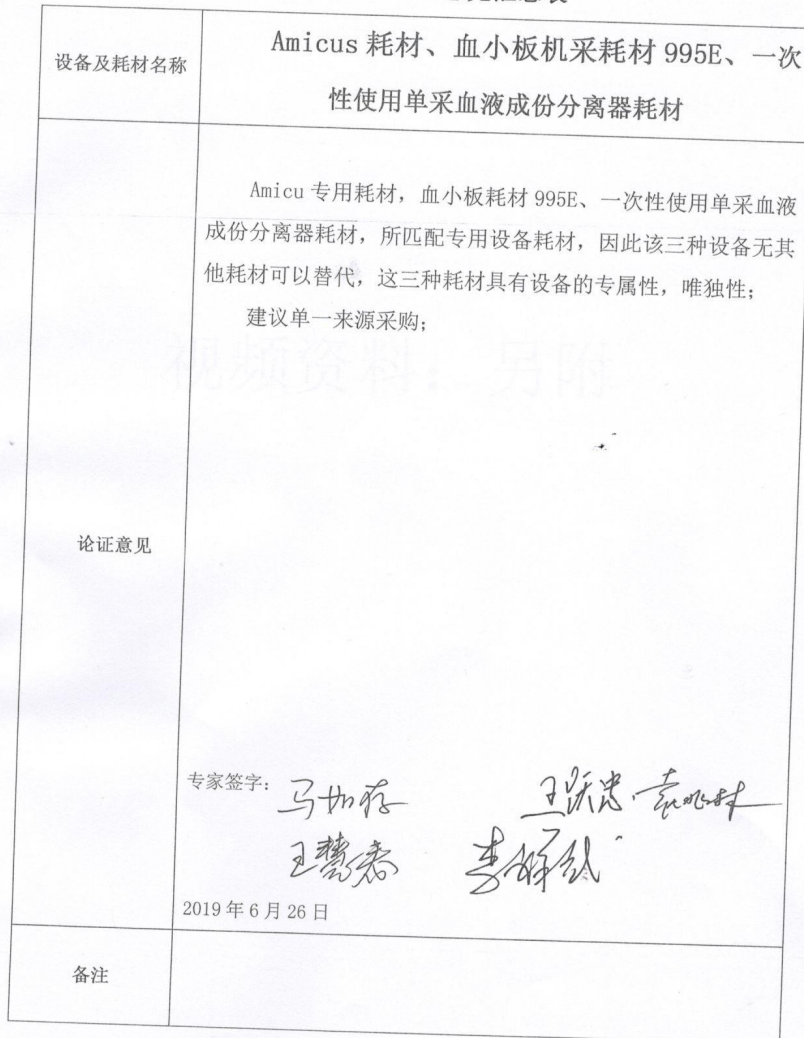 设备及耗材名称
Amicus 耗材、血小板机采耗材 995E、一次
性使用单采血液成份分离器耗材
Amicu 专用耗材，血小板耗材 995E、一次性使用单采血液
成份分离器耗材，所匹配专用设备耗材，因此该三种设备无其
他耗材可以替代，这三种耗材具有设备的专属性，唯独性；
建议单一来源采购；
视频资料：另附
论证意见
专家签字：
2019 年 6 月 26 日
备注